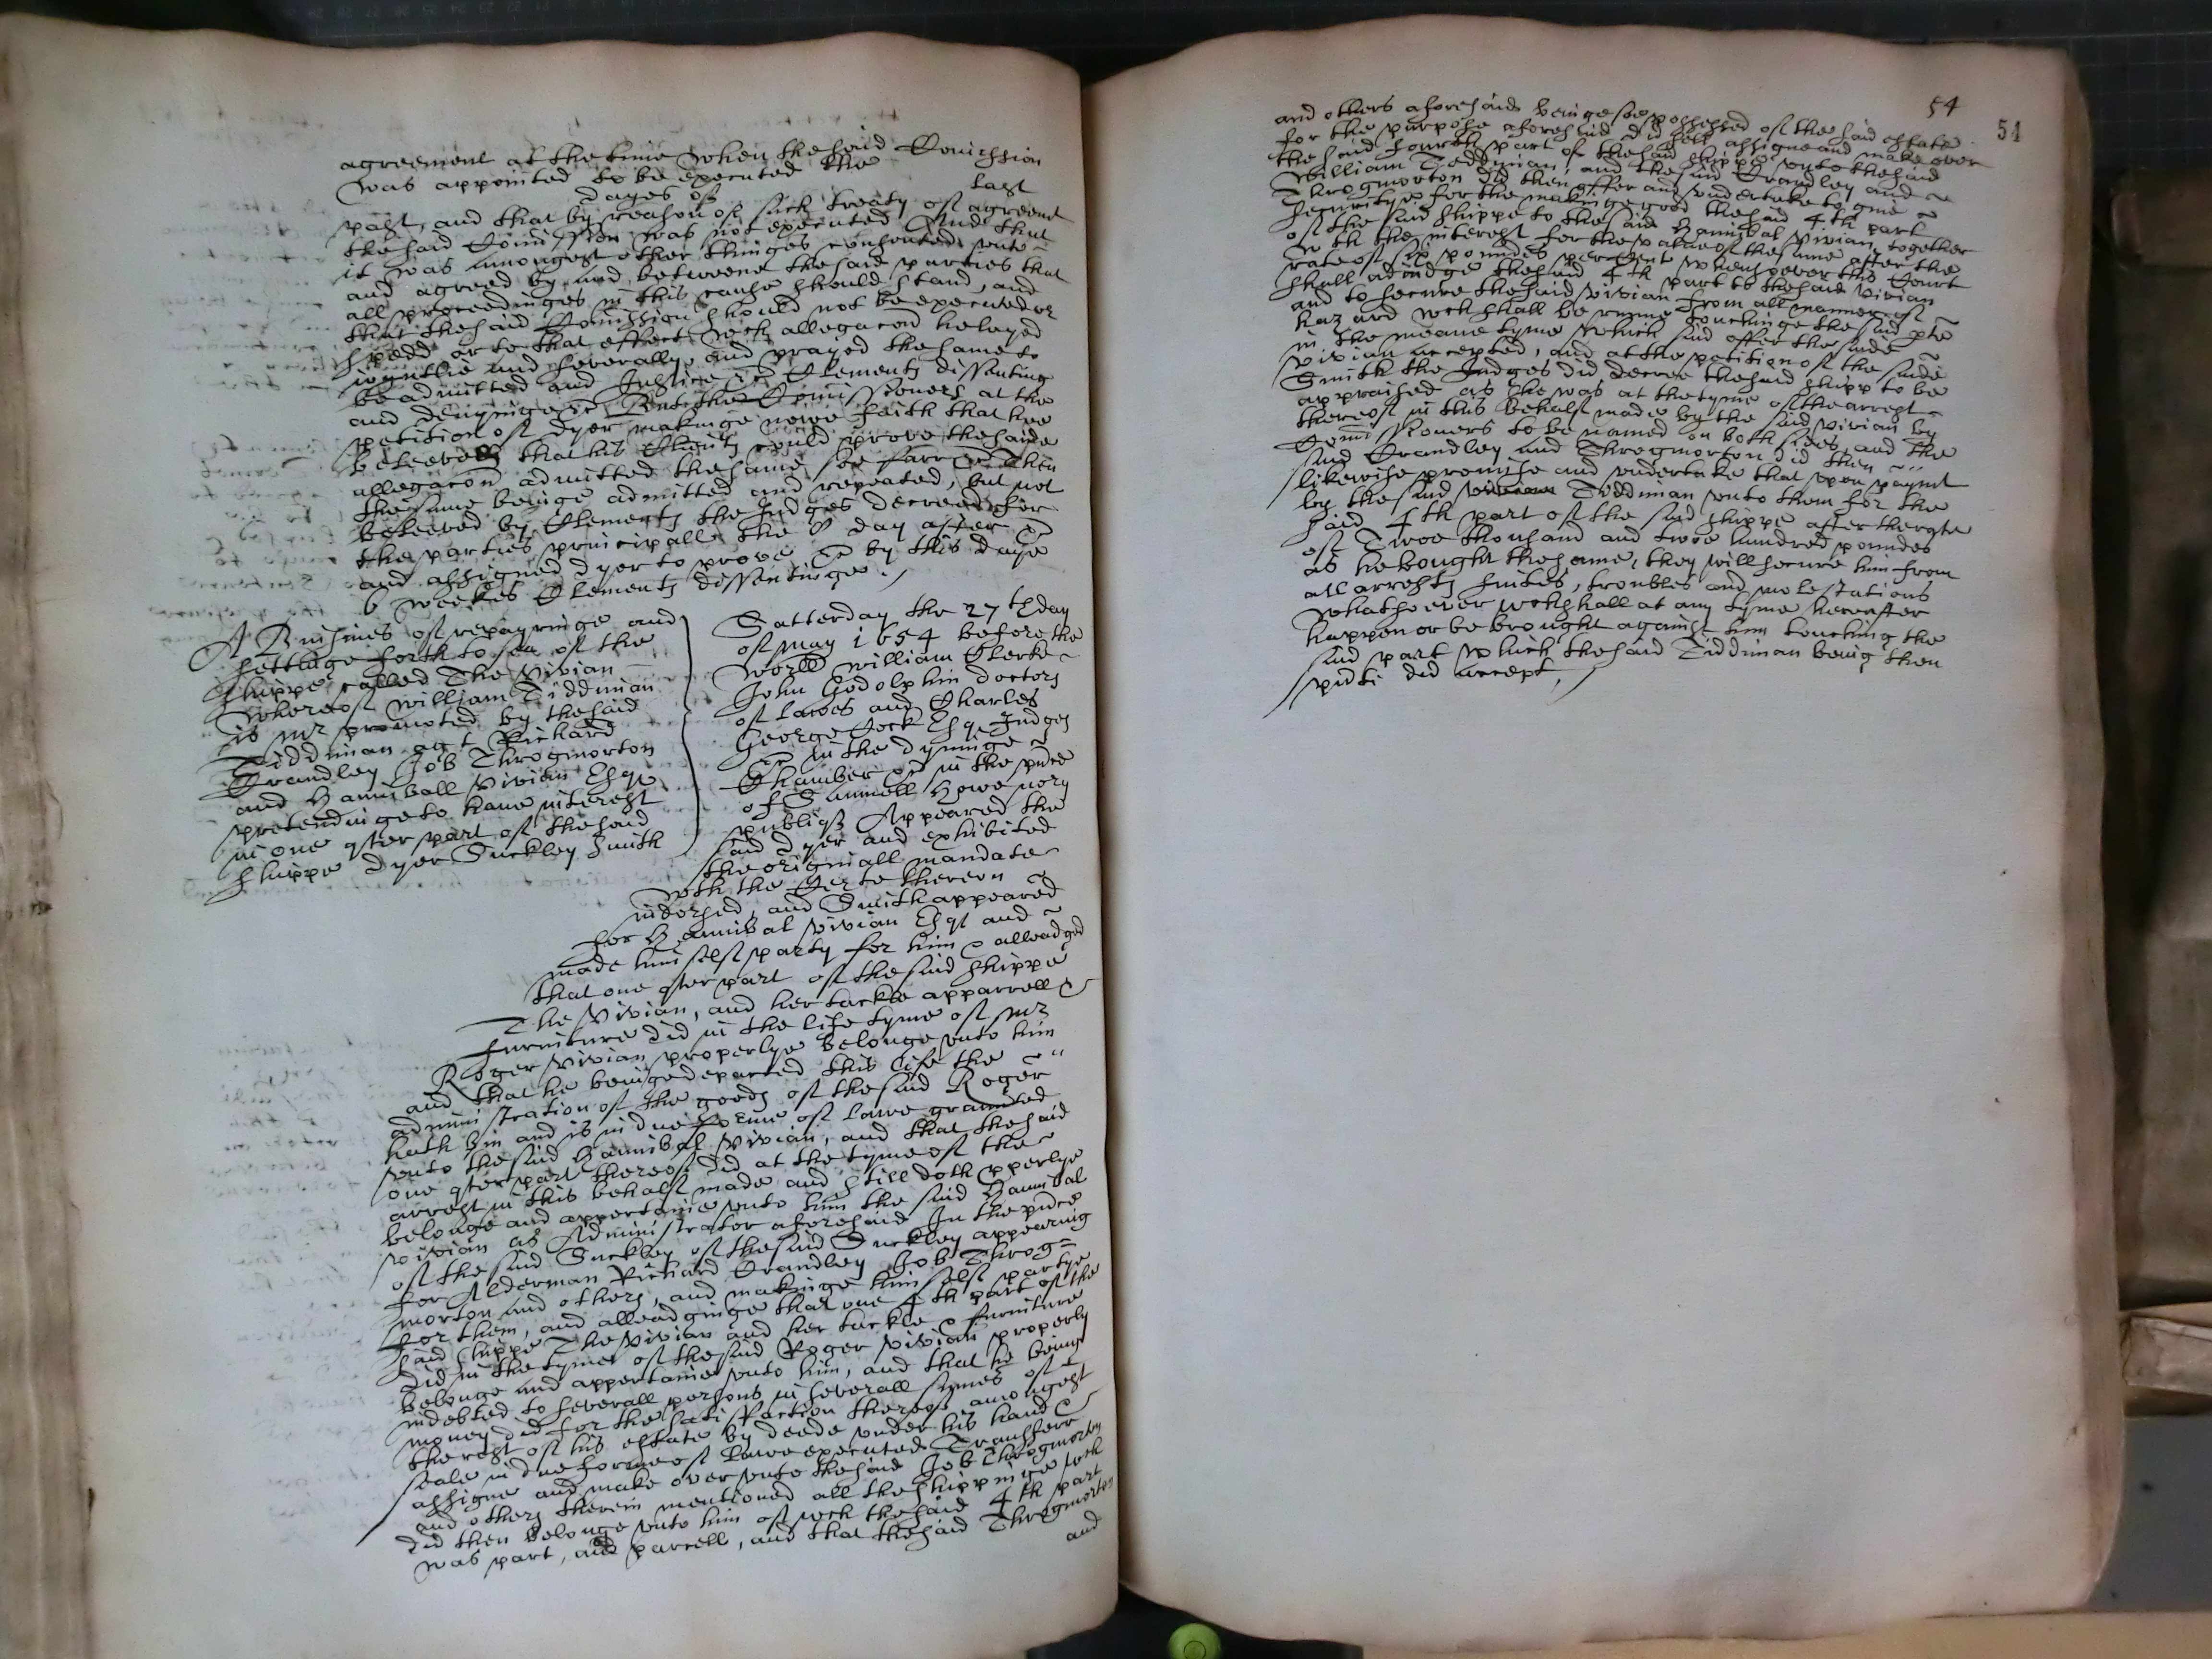 agreement at the time when the said Comission
was appointed to be executed the
dayes of last
past, and that by reason of such treaty of agreemt
the said Comission was not executed And that
it was amongest other thinges consented unto
and agreed by and betweene the said parties that
all proceedinges in this cause should stand, and
that the said Comission should not be executed or
sped or to that effect wch allegacon he layed
iointlie and severally, and prayed the same to
be admitted and Justice Clements dissenting
and denyinge But the Comissioners at the
petition of Dyer makinge newe faith that hee
beleeves that his Clients could prove the saide
allegacon admitted the same soe farr Then
the same beinge admitted and repeated, but not
beleeved by Clements the Judges decreed for
the parties principall the 8 day after
and assigned Dyer to prove by this daye
6 weekes Clements dissentinge.
A Busines of repayringe and
settinge forth to sea of the
shippe called The Vivian
whereof William Tiddiman
is mr promoted by the said
Tiddiman agt Richard
Crandley Job Throgmorton
and Hanniball Vivian Esqr
pretendinge to have interest
in one qter part of the said
shippe Dyer Suckley Smith
Satterday the 27th day
of May 1654 before the
worll William Clerke
John Godolphin doctors
of lawes and Charles
George Cock Esqr Judges
in the dyninge
Chamber in the pnce
of Samuell Howe nory
publiqs Appeared the
said Dyer and exhibited
the originall mandate
with the Certe thereon
indorsed, and Smith appeared
for Hannibal Vivian Esqr and
made himself party for him & alleadged
that one qter part of the said shippe
The Vivian, and her tackle apparrell &
furniture did in the life tyme of mr
Roger Vivian properlye belonge unto him
and that he beinge departed this life the
administration of the goods of the said Roger
hath bin and is in due forme of lawe graunted
unto the said Hannibal Vivian, and that the said
one qter part thereof did at the tyme of the
arrest in this behalf made and still doth pperlye
belonge and appertaine unto him the said Hannibal
Vivian as Administrator aforesaid In the pnce
of the said Suckley of the said Suckley appearing
for Alderman Richard Crandley Job Throg=
morton and others, and makinge himself partye
for them, and alleadginge that one 4th part of the
said shippe The Vivian and her tackle & furniture
did in the tyme of the said Roger Vivian properly
belonge and appertaine unto him, and that he being
indebted to severall persons in severall sumes of
money did for the satisfaction thereof amongest
the rest of his estate by deede under his hand &
seale in due forme of Lawe executed Transferr
assigne and make over unto the said Job Throgmorton
and others therein mentioned all the shippinge wch
did then belonge unto him of wch the said 4th part
was part, and parcell, and that the said Throgmorton
and
54
54
and others aforesaid beinge soe possessed of the said estate
for the purpose aforesaid did sell assigne and make over
the said fourth part of the said shippe unto the said
William Tiddiman, and the said Crandley and
Throgmorton did then offer and undertake to give
securitye for the makinge good the said 4th part
of the said shippe to the said Hannibal Vivian together
with the interest for the value of the same after the
rate of six pounds percent whensoever this Court
shall adiudge the said 4th part to the said Vivian
and to secure the said Vivian from all manner of
hazard wch shall be runne touchinge the said pte
in the meane tyme which said offer the saide
Vivian accepted, and at the petition of the saide
Smith the Judges did decree the said shipp to be
appraised as she was at the tyme of the arrest
thereof in this behalf made by the said Vivian by
Comissioners to be named on both sides, and the
said Crandley and Throgmorton did then
likewise promise and undertake that upon paymt
by the said Tiddiman unto them for the
said 4th part of the said shippe after the rate
of Twoe thousand and twoe hundred poundes
as he bought the same, they will secure him from
all arrests suites, troubles and molestations
whatsoever wch shall at any tyme hereafter
happen or be brought against him touching the
said part which the said Tiddiman being then
pnte did accept.